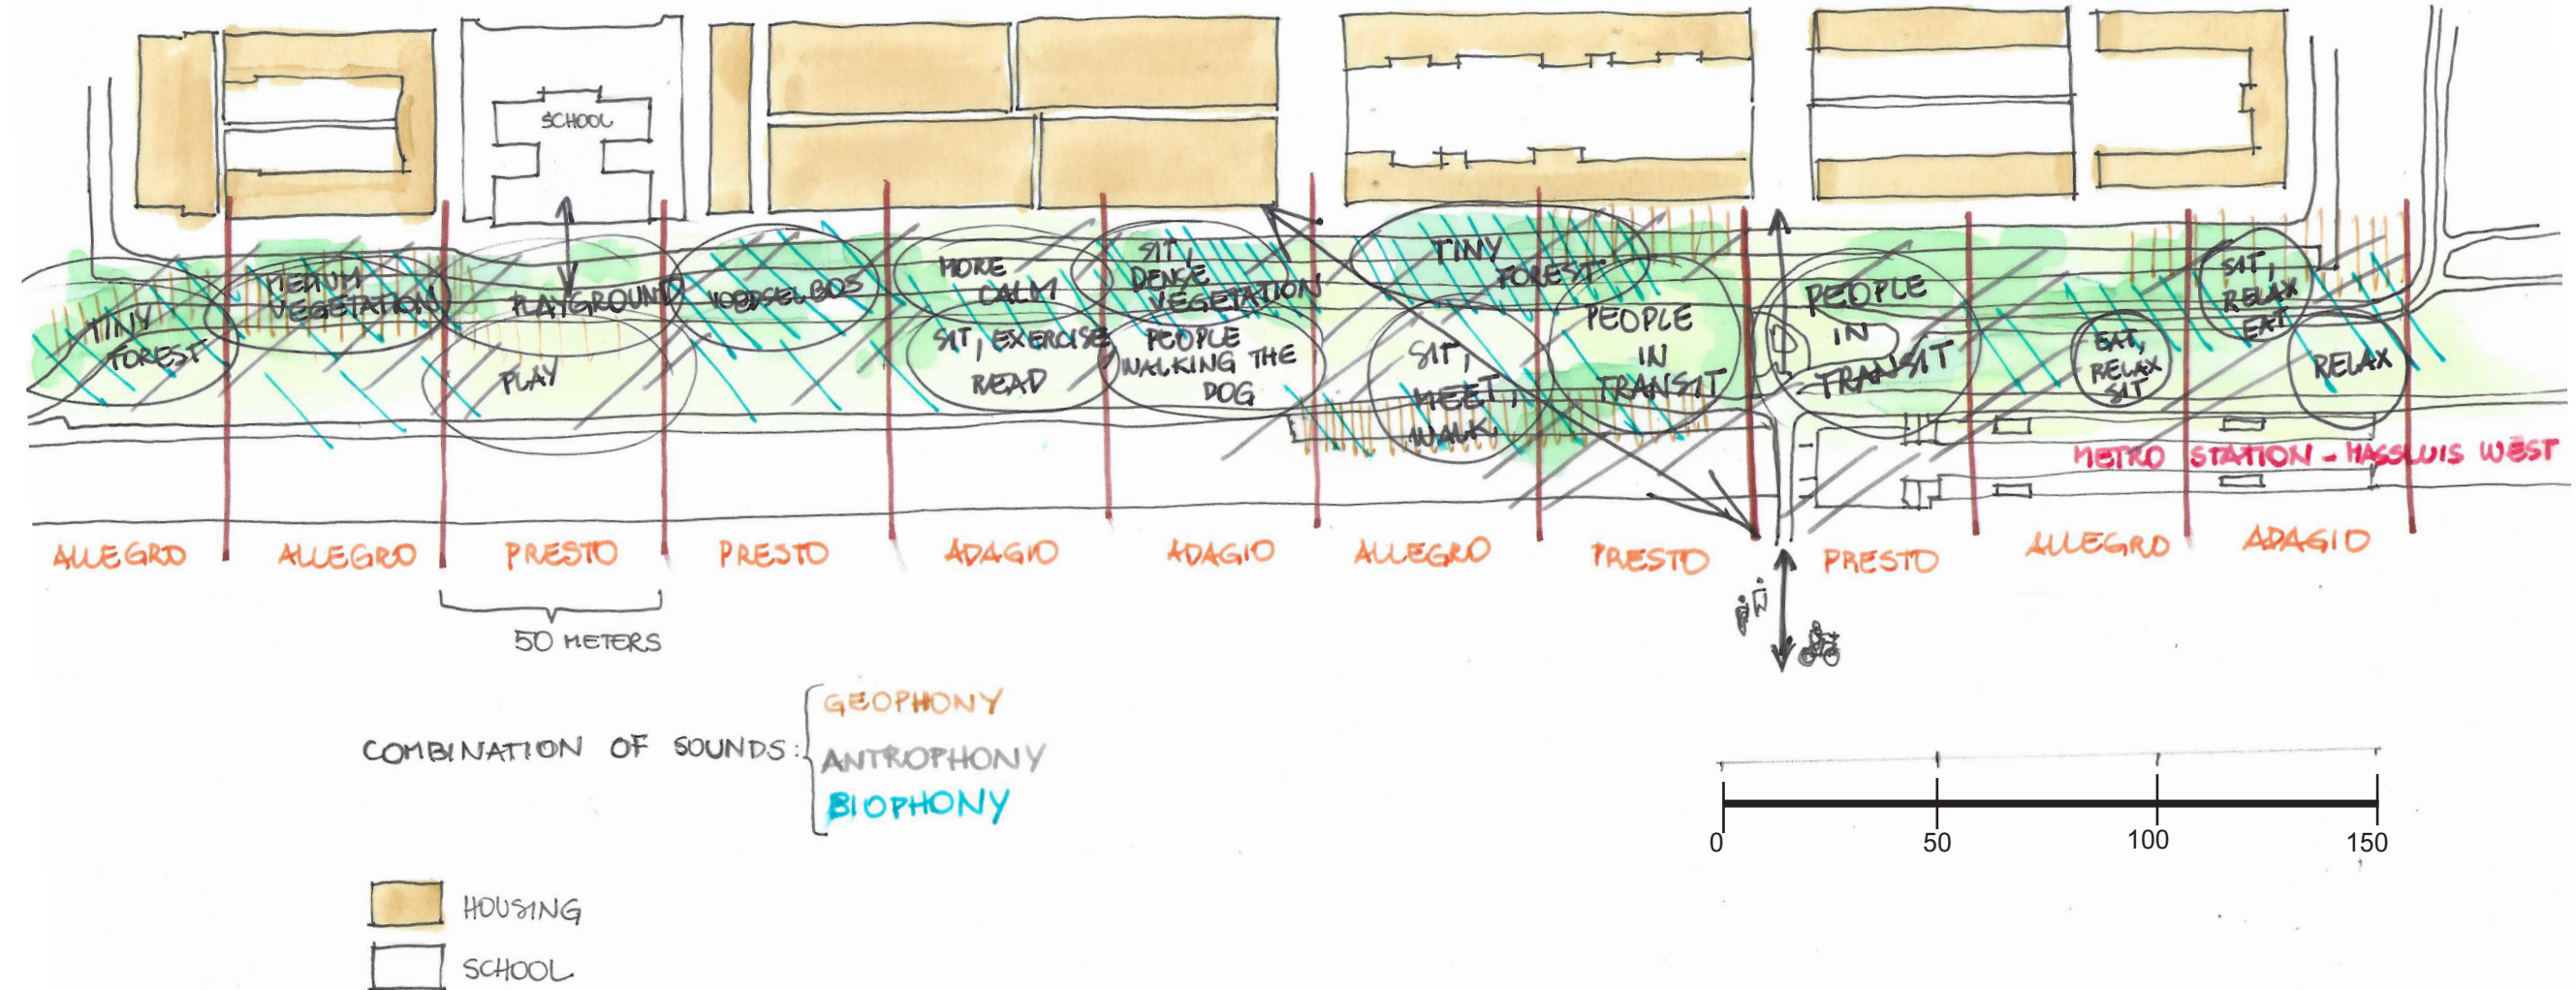 SCHOOL
TINY
FOREST
MEDIUM
VEGETATION
PLAYGROUND
PLAY
VOEDSELBOS
MORE
CALM
SIT, EXERCISE
READ
SIT,
DENSE
VEGETATION
PEOPLE
WALKING THE
DOG
TINY
FOREST
SIT,
MEET,
WALK
PEOPLE
IN
TRANSIT
PEOPLE
IN
TRANSIT
EAT,
RELAX
SIT
SIT,
RELAX
EAT
RELAX
METRO STATION - MASSLUIS WEST
ALLEGRO ALLEGRO PRESTO PRESTO ADAGIO ADAGIO ALLEGRO PRESTO PRESTO ALLEGRO ADAGIO
50 METERS
COMBINATION OF SOUNDS:
GEOPHONY
ANTROPHONY
BIOPHONY
0 50 100 150
HOUSING
SCHOOL